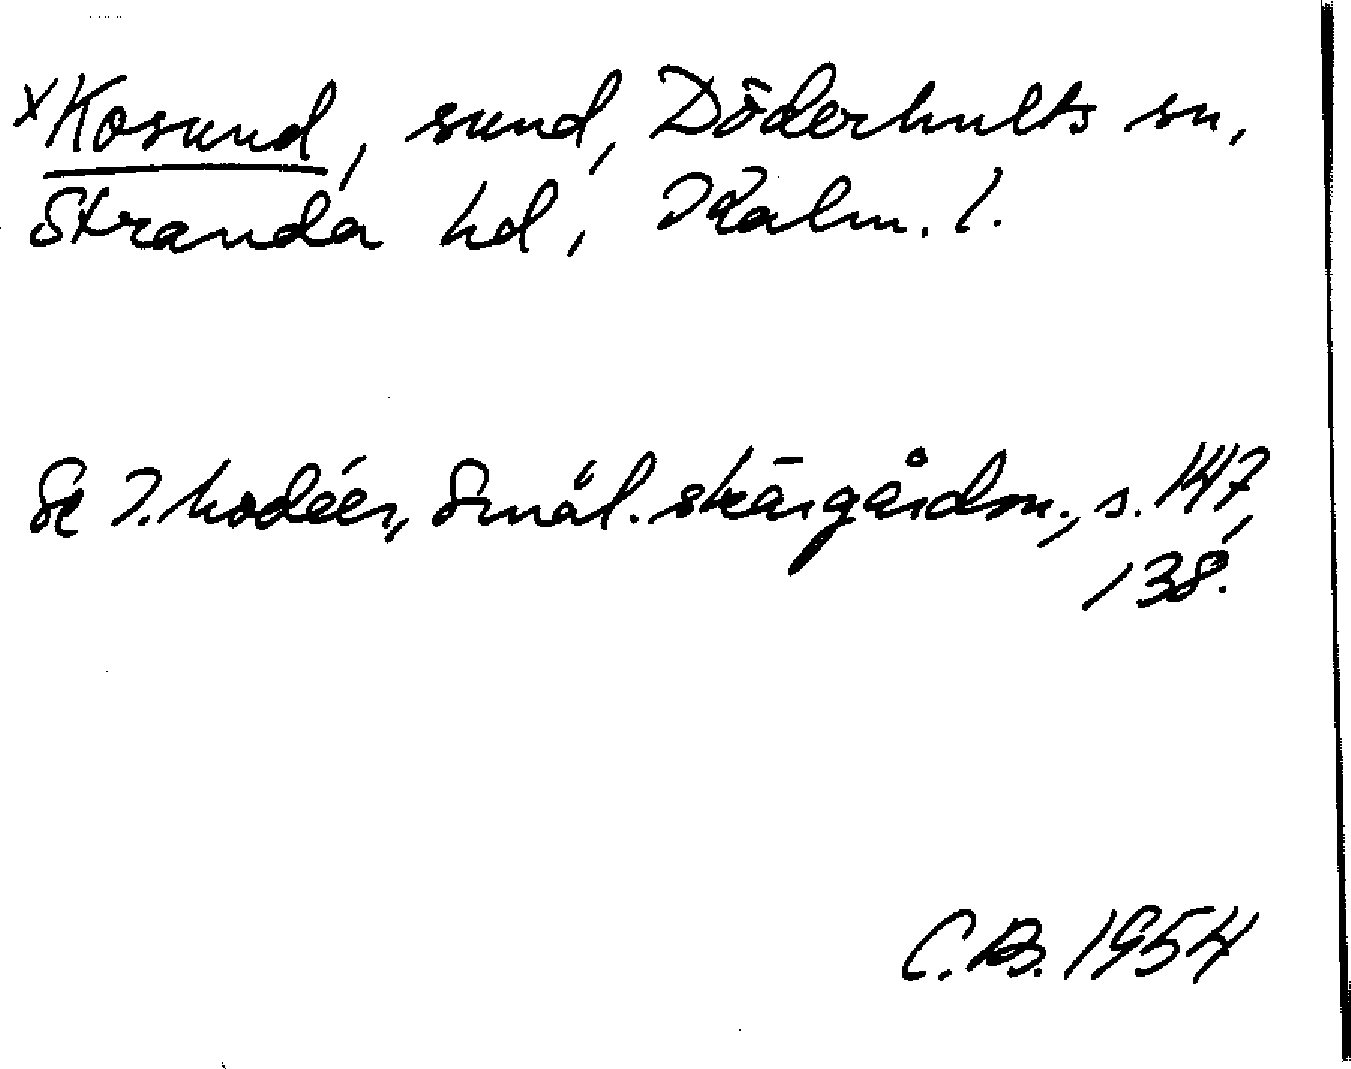 x Kosund, sund, Döderhults sn,
Stranda hd, Kalm. l.
Se I. Modéer, Smål. skärgårdsn., s. 147,
138.
C.B. 1954